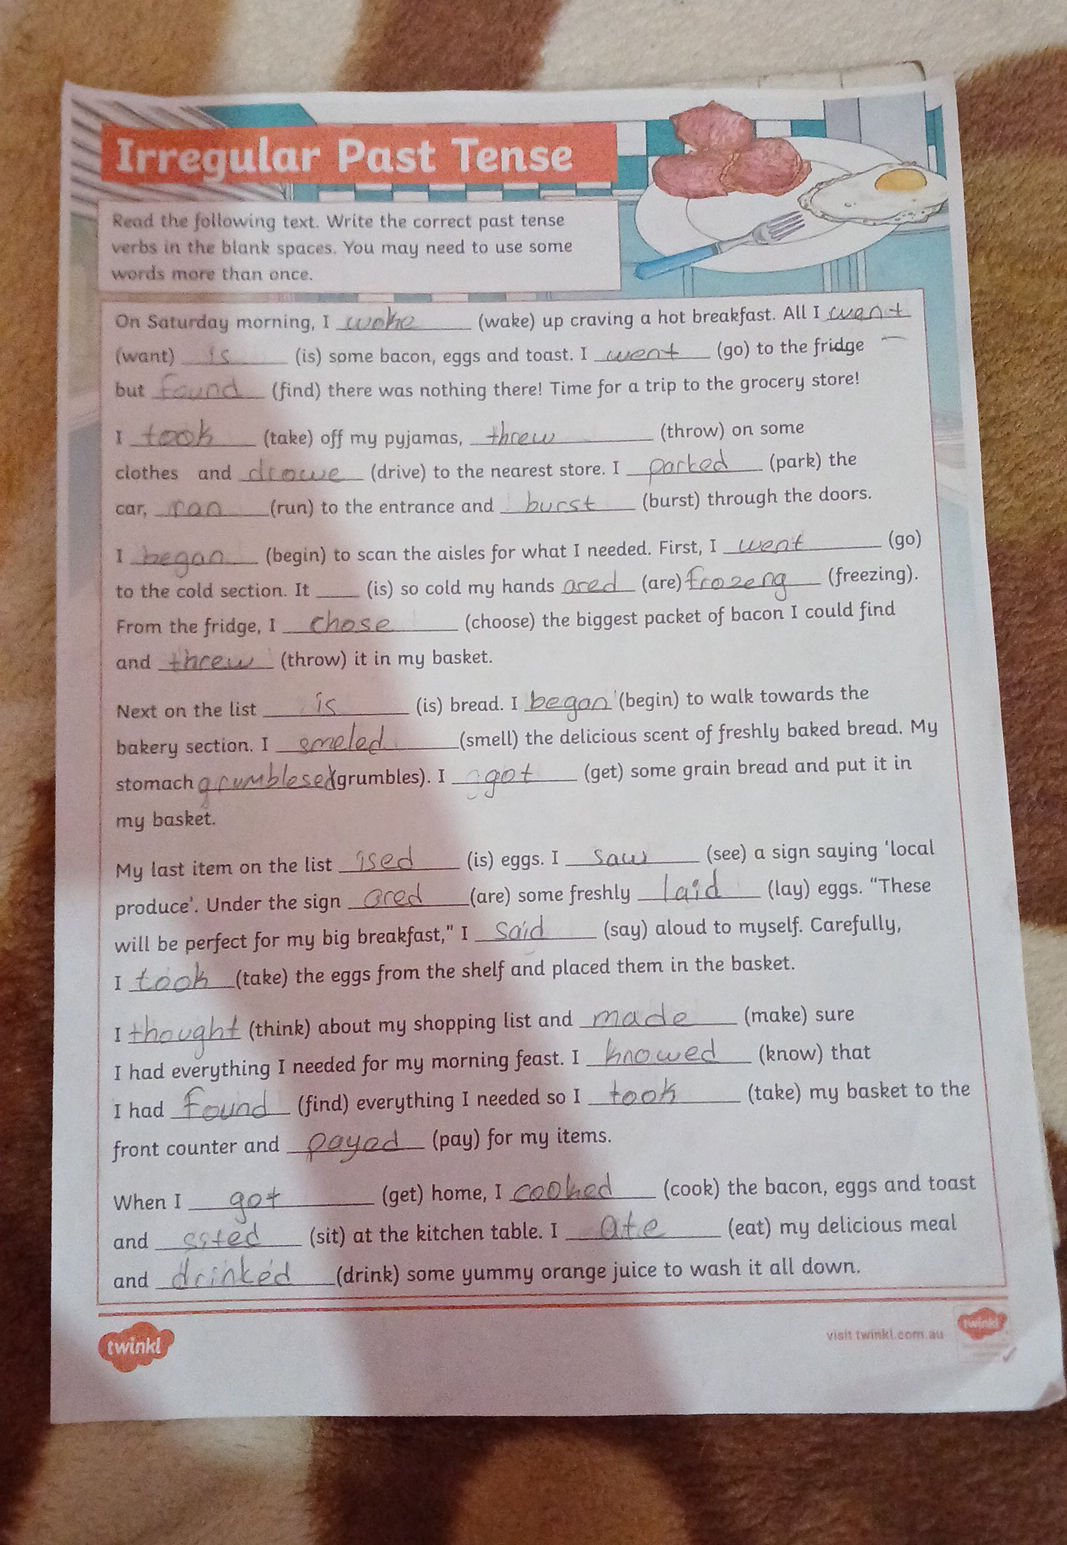 Irregular Past Tense
Read the following text. Write the correct past tense
verbs in the blank spaces. You may need to use some
words more than once.
On Saturday morning, I woke (wake) up craving a hot breakfast. All I went
(want) is (is) some bacon, eggs and toast. I went (go) to the fridge
but found (find) there was nothing there! Time for a trip to the grocery store!
I took (take) off my pyjamas, threw (throw) on some
clothes and drowe (drive) to the nearest store. I parked (park) the
car, ran (run) to the entrance and burst (burst) through the doors.
I began (begin) to scan the aisles for what I needed. First, I went (go)
to the cold section. It ____ (is) so cold my hands ared (are) frozeng (freezing).
From the fridge, I chose (choose) the biggest packet of bacon I could find
and threw (throw) it in my basket.
Next on the list is (is) bread. I began (begin) to walk towards the
bakery section. I smeled (smell) the delicious scent of freshly baked bread. My
stomach grumblesed (grumbles). I got (get) some grain bread and put it in
my basket.
My last item on the list ised (is) eggs. I saw (see) a sign saying ‘local
produce’. Under the sign ared (are) some freshly laid (lay) eggs. “These
will be perfect for my big breakfast,” I said (say) aloud to myself. Carefully,
I took (take) the eggs from the shelf and placed them in the basket.
I thought (think) about my shopping list and made (make) sure
I had everything I needed for my morning feast. I knowed (know) that
I had found (find) everything I needed so I took (take) my basket to the
front counter and payed (pay) for my items.
When I got (get) home, I cooked (cook) the bacon, eggs and toast
and sited (sit) at the kitchen table. I ate (eat) my delicious meal
and drinked (drink) some yummy orange juice to wash it all down.
twinkl
visit twinkl.com.au
twinkl